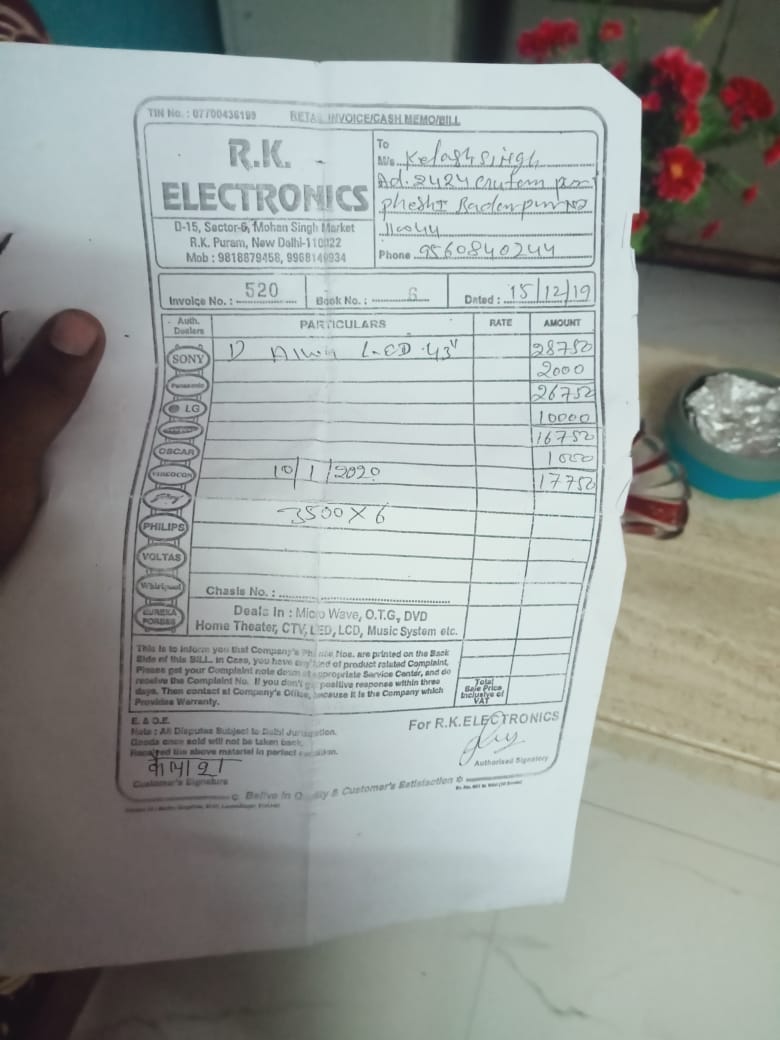 TIN No. : 07700436199 RETAIL INVOICE/CASH MEMO/BILL
R.K.
ELECTRONICS
D-15, Sector-6, Mohan Singh Market
R.K. Puram, New Delhi-110022
Mob : 9818879458, 9968140934
To
M/s. Kelash Singh
Ad. 2424
110044
Phone 9560840244
Invoice No. : 520 Book No. : 6 Dated : 15/12/19
Auth. Dealers PARTICULARS RATE AMOUNT
SONY LCD 43" 28750
Panasonic 2000
LG 26750
10000
OSCAR 16750
VIDEOCON 1000
10/1/2020 17750
3500 X 6
PHILIPS
VOLTAS
Whirlpool
EUREKA FORBES
Chasis No. :
Deals In : Micro Wave, O.T.G., DVD
Home Theater, CTV, LED, LCD, Music System etc.
This is to inform you that Company's Phone Nos. are printed on the Back
Side of this BILL. In Case, you have any kind of product related Complaint,
Please get your Complaint note down at appropriate Service Center, and do
receive the Complaint No. If you don't get positive response within three
days. Then contact at Company's Office, because it is the Company which
Provides Warranty.
Total
Sale Price
Inclusive of
VAT
E. & O.E.
Note : All Disputes Subject to Delhi Jurisdiction.
Goods once sold will not be taken back.
Received the above material in perfect condition.
For R.K.ELECTRONICS
Authorised Signatory
Customer's Signature
Belive in Quality & Customer's Satisfaction